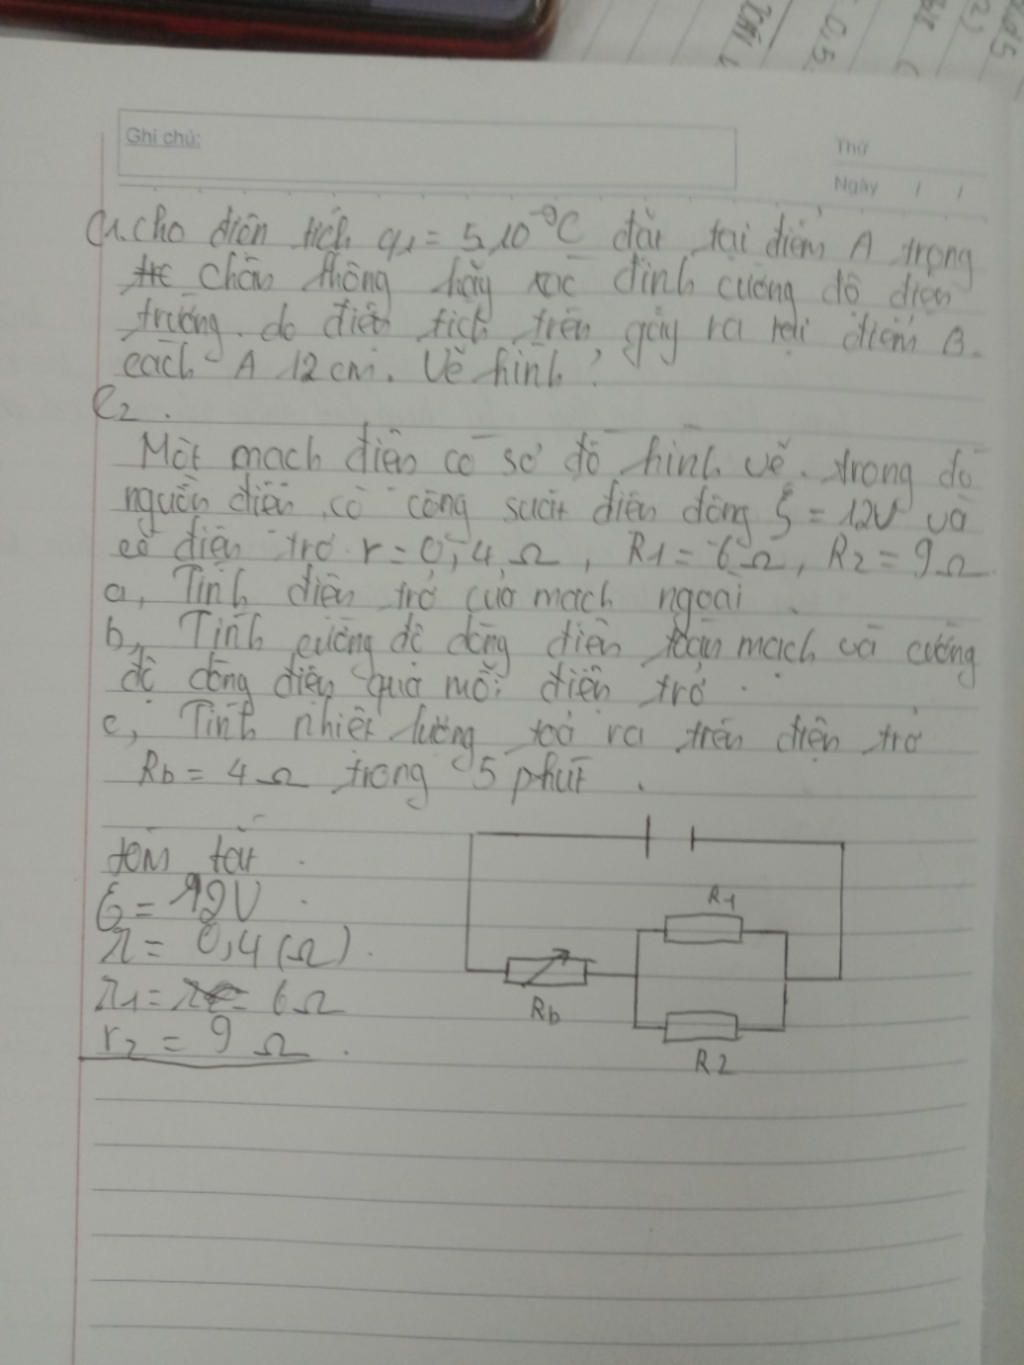 Ghi chú:
Thứ
Ngày / /
C1. cho điện tích q1 = 5.10^-9C đặt tại điểm A trong
chân không hãy xác định cường độ điện
trường do điện tích trên gây ra tại điểm B
cách A 12 cm. Vẽ hình?
C2.
Một mạch điện có sơ đồ hình vẽ. trong đó
nguồn điện có công suất điện động ξ = 12V và
có điện trở r = 0,4 Ω, R1 = 6 Ω, R2 = 9 Ω
a, Tính điện trở của mạch ngoài.
b, Tính cường độ dòng điện toàn mạch và cường
độ dòng điện qua mỗi điện trở.
c, Tính nhiệt lượng toả ra trên điện trở
Rb = 4 Ω trong 5 phút.
tóm tắt.
ξ = 12V
r = 0,4 (Ω).
r1 = 6 Ω
r2 = 9 Ω.
R1
Rb
R2